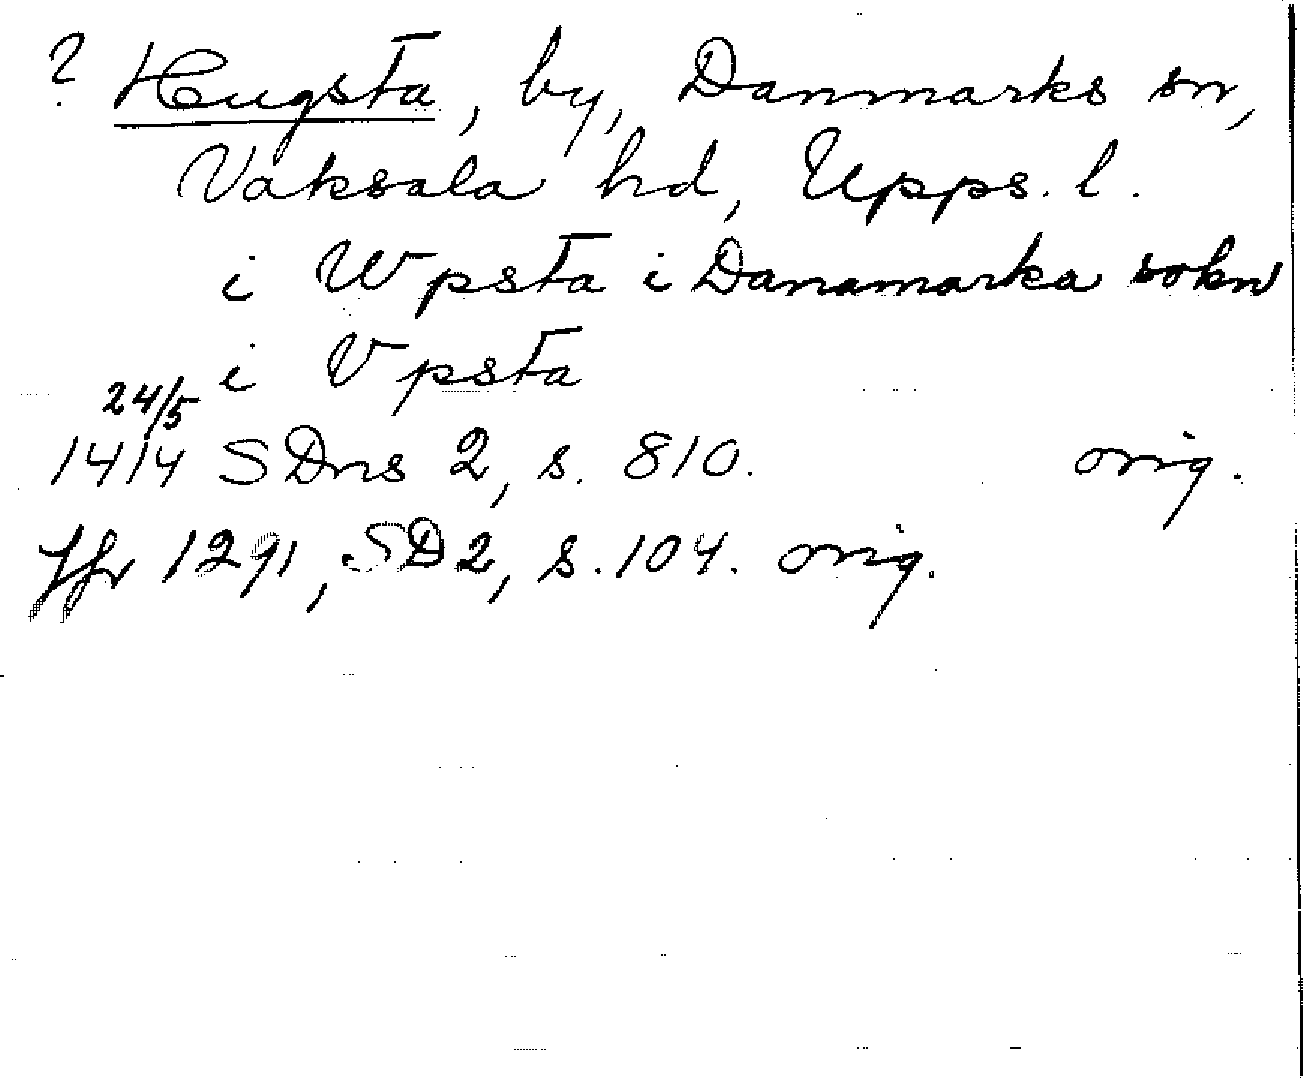 ? Hugsta, by, Danmarks sn,
Vaksala hd, Upps. l.
i Wpsta i Danamarka sokn
i Vpsta
24/5
1414 SDns 2, s. 810. orig.
Jfr 1291, SD 2, s. 104. orig.